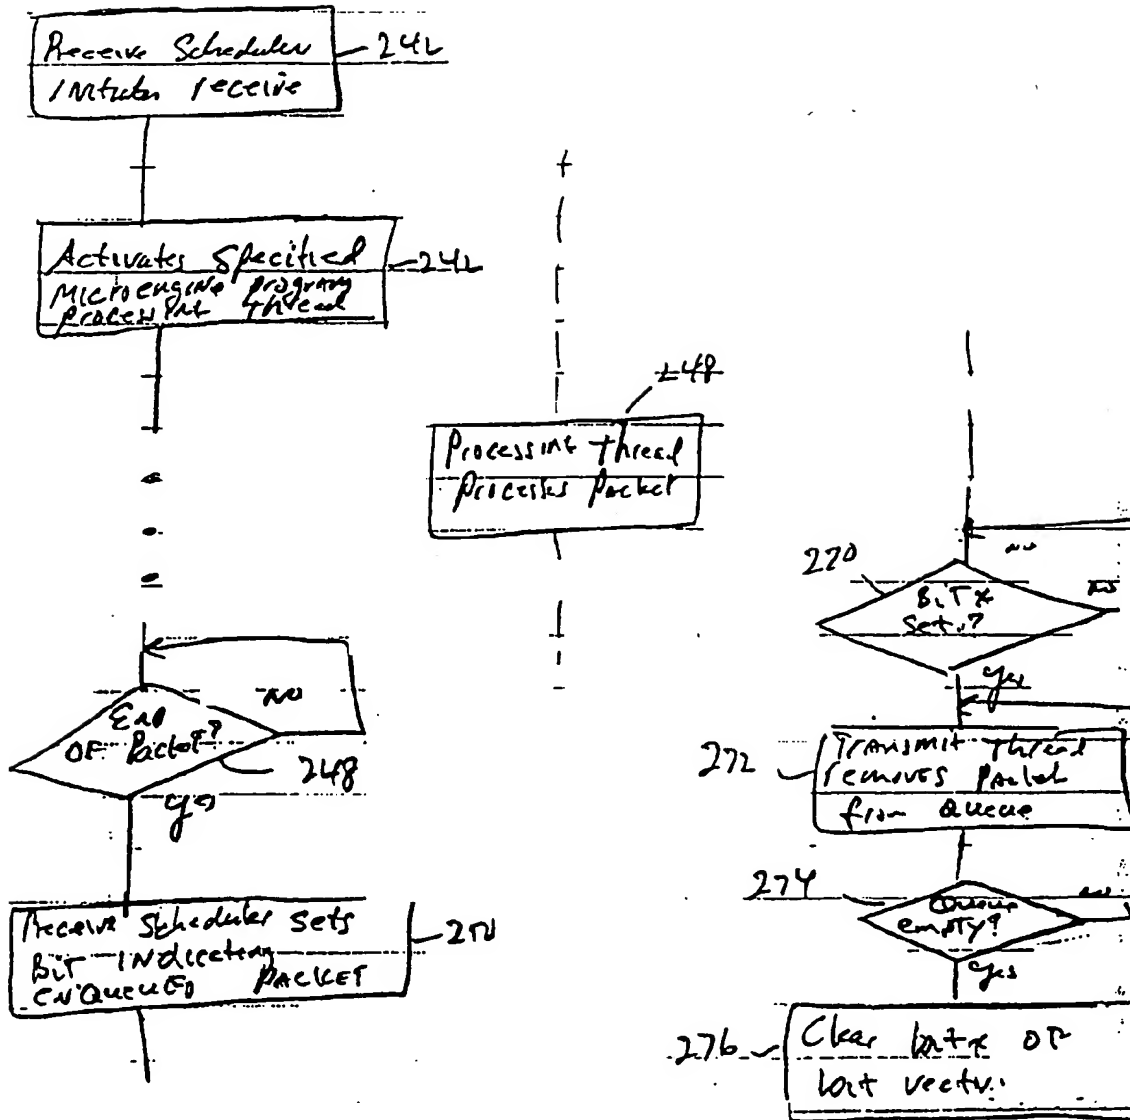 Receive Scheduler
Initiates receive
242
Activates Specified
Microengine program
processing thread
242
248
Processing thread
Processes Packet
End
OF Packet?
NO
248
yes
Receive Scheduler sets
BIT INDICATING
ENQUEUED PACKET
250
270
BIT x
Set?
NO
NO
yes
272
TRANSMIT thread
removes Packet
from Queue
274
Queue
empty?
NO
yes
276
Clear bit x of
bit vector